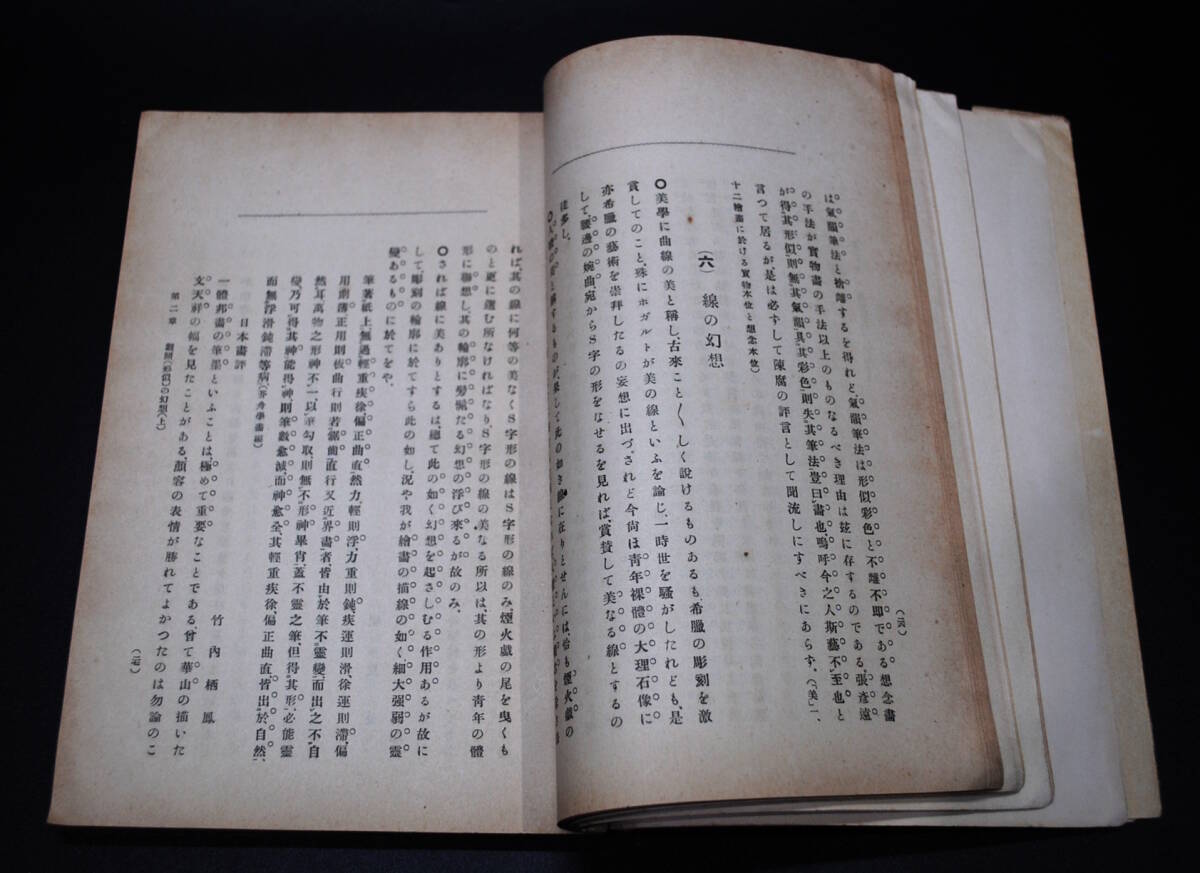 は氣韻筆法と捨離するを得れど氣韻筆法は形似彩色と不離不即である想念畫
の手法が實物畫の手法以上のものなるべき理由は玆に存するのである張彥遠
が得其形似則無其氣韻具其彩色則失其筆法豈曰畫也嗚呼今之人斯藝不至也と
言つて居るが是は必ずして陳腐の評言として聞流しにすべきにあらず。(『美』一、
十二繪畫に於ける實物本位と想念本位)
(六) 線の幻想
〇美學に曲線の美と稱し、古來こと〲しく說けるものあるも、希臘の彫刻を激
賞してのこと、殊にホガルトが美の線といふを論じ、一時世を騷がしたれども、是
亦希臘の藝術を崇拜したるの妄想に出づ。されど今尙ほ靑年裸體の大理石像に
して、腰邊の婉曲宛からS字の形をなせるを見れば、賞贊して美なる線とするの
徒多し。
れば、其の線に何等の美なくS字形の線はS字形の線のみ、煙火戲の尾を曳くも
のと更に選む所なければなり、S字形の線の美なる所以は、其の形より靑年の體
形に聯想し、其の輪廓に髣髴たる幻想の浮び來るが故のみ。
〇されば線に美ありとするは、總て此の如く幻想を起さしむる作用あるが故に
して、彫刻の輪廓に於てすら此の如し、況や我が繪畫の描線の如く細大强弱の靈
變あるものに於てをや。
筆著紙上、無過輕重疾徐偏正曲直、然力輕則浮、力重則鈍、疾運則滑、徐運則滯、偏
用則薄、正用則板、曲行則若鋸齒、直行又近界畫者、皆由於筆不靈變、而出之不自
然耳、萬物之形神不一、以筆勾取、則無不形神畢肖、蓋不靈之筆、但得其形、必能靈
變、乃可得其神、能得神則筆數愈減而神愈全、其輕重疾徐、偏正曲直、皆出於自然、
而無浮滑鈍滯等病、(芥舟學畫編)
日本畫評 竹內栖鳳
一體邦畫の筆墨といふことは、極めて重要なことである、曾て華山の描いた
文天祥の幅を見たことがある、顏容の表情が勝れてよかつたのは勿論のこ
第二章